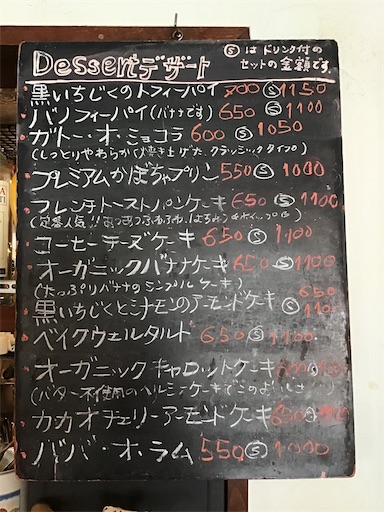 Dessertデザート
Ⓢはドリンク付の
セットの金額です。
黒いちじくのトフィーパイ 700 Ⓢ1150
バノフィーパイ(バナナです) 650 Ⓢ1100
ガトー・オ・ショコラ 600 Ⓢ1050
(しっとりやわらかく焼き上げた、クラシックタイプの)
プレミアムかぼちゃプリン 550 Ⓢ1000
フレンチトーストパンケーキ 650 Ⓢ1100
(定番人気!!あつあつふわふわ、はちみつ
コーヒーチーズケーキ 650 Ⓢ1100
オーガニックバナナケーキ 650 Ⓢ1100
(たっぷりバナナのシンプルケーキ)
黒いちじくとシナモンのアーモンドケーキ 650
Ⓢ
ベイクウェルタルト 650 Ⓢ1100
オーガニックキャロットケーキ
(バター不使用のヘルシーケーキでこのおいしさ
カカオチェリーアーモンドケーキ 650 Ⓢ
ババ・オ・ラム 550 Ⓢ1000